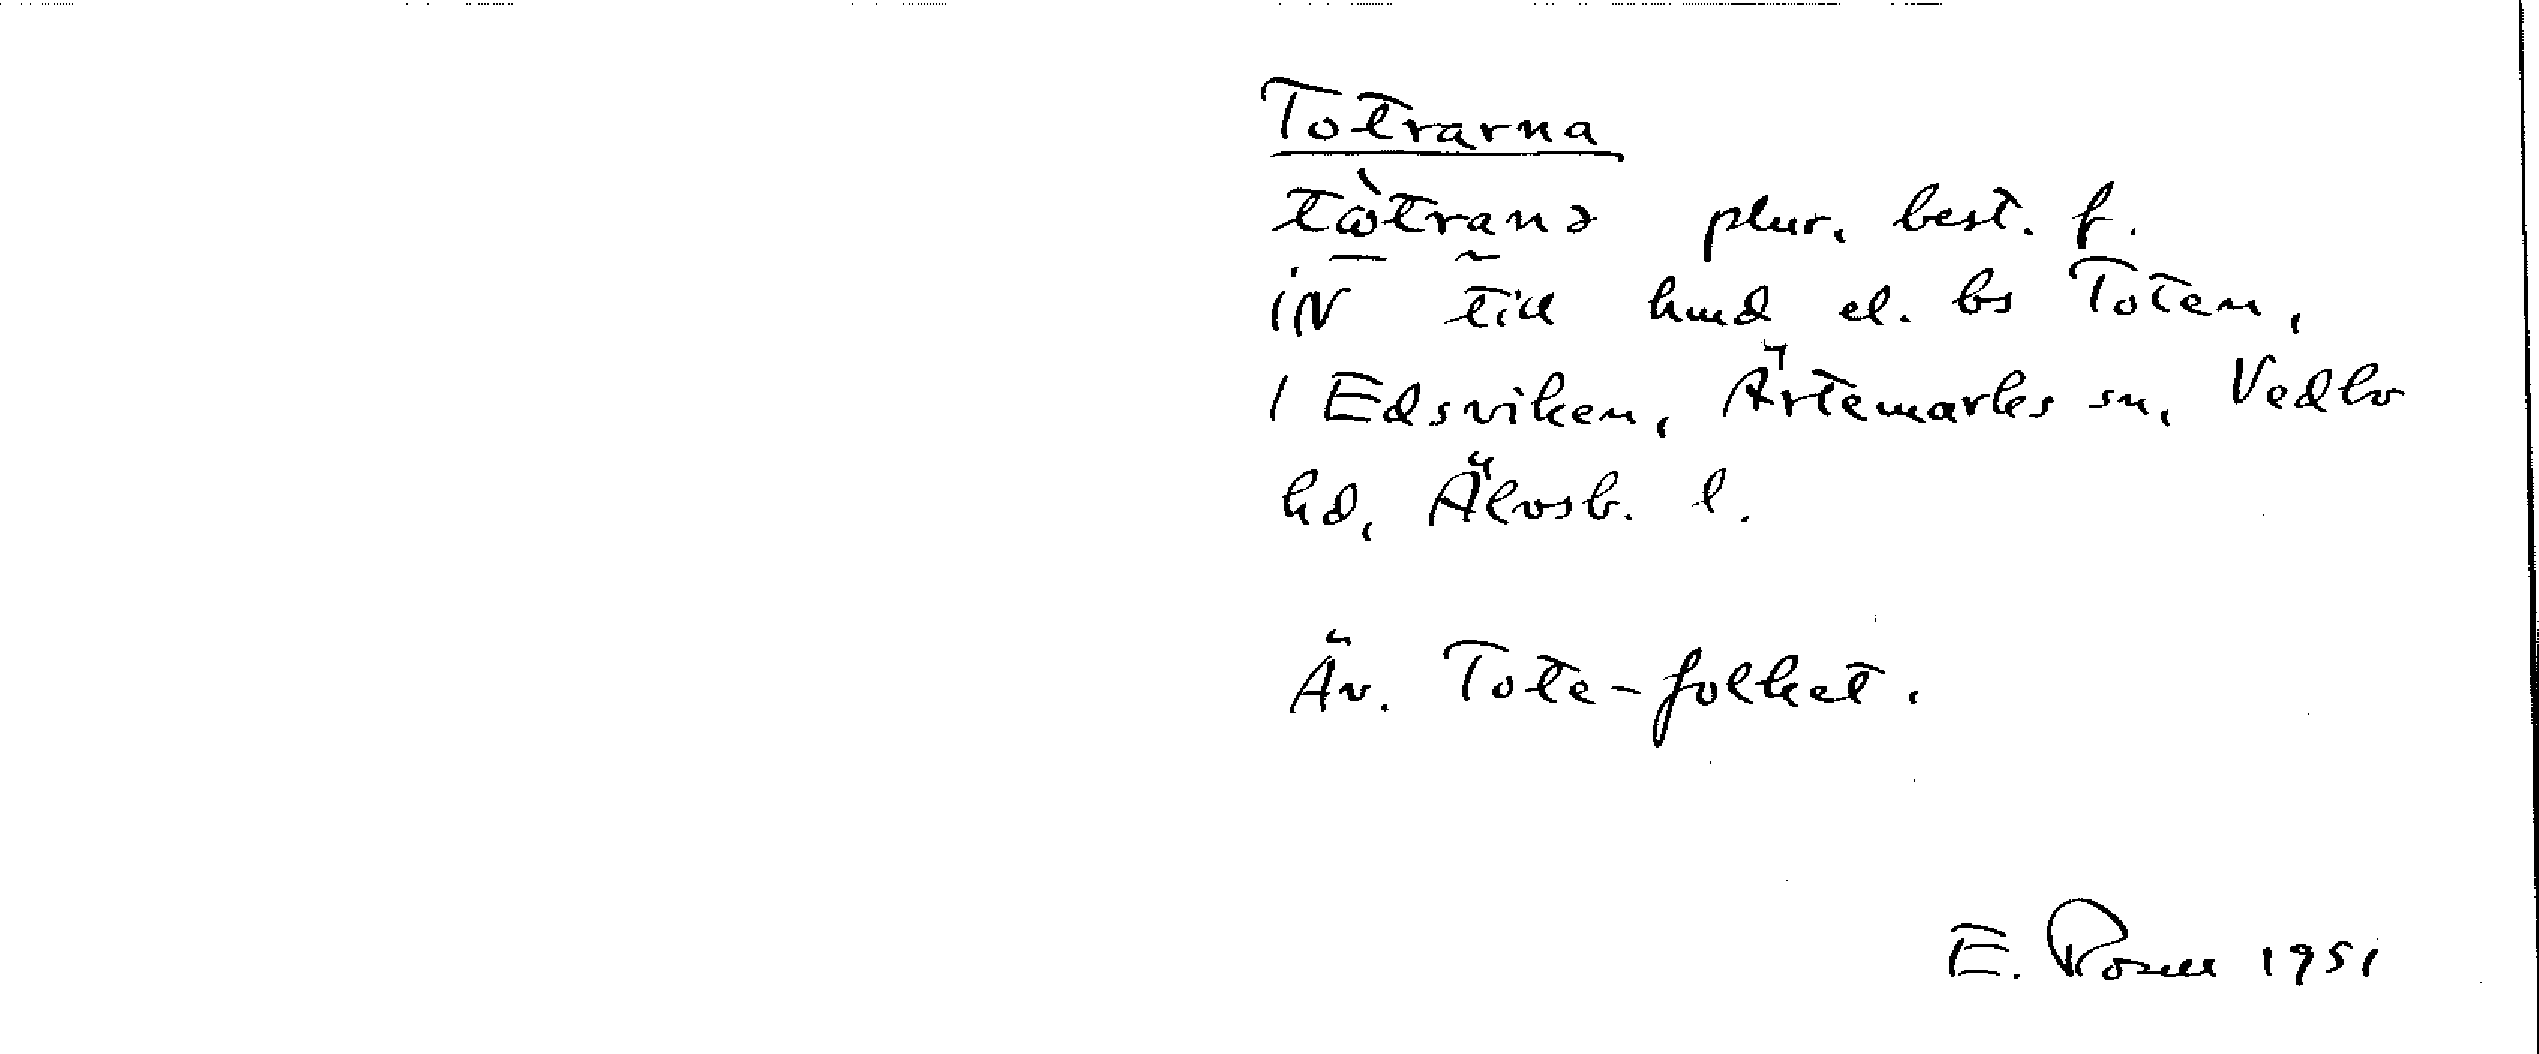 Totrarna
tὼtranə plur. best. f.
iN till hmd el. bs Toten,
i Edsviken, Ärtemarks sn, Vedbo
hd, Älvsb. l.
Äv. Tote-folket.
E. Rosell 1951